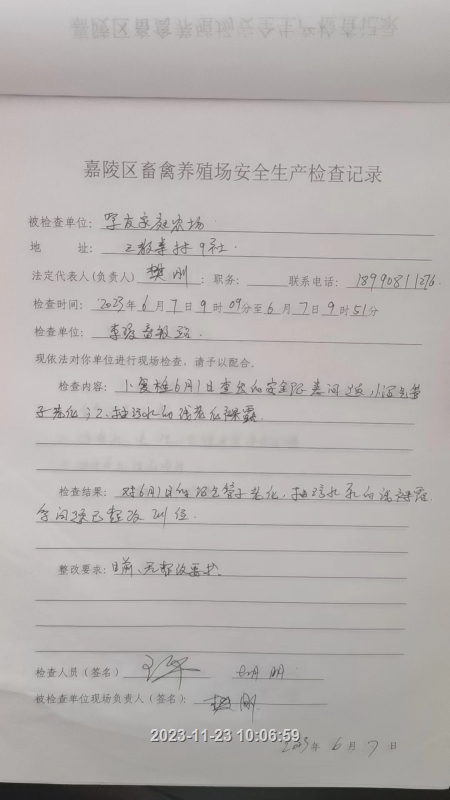 嘉陵区畜禽养殖场安全生产检查记录
被检查单位: 学友家庭农场
地 址: 三教寺村9社
法定代表人(负责人) 樊刚 : 职务: 联系电话: 18990811276.
检查时间: 2023年6月7日9时09分至6月7日9时51分
检查单位:
现依法对你单位进行现场检查, 请予以配合。
检查内容: 1、复检6月1日查出的安全隐患问题,
子老化;2、抽污水的线老化裸露
检查结果: 对6月1日 管子老化, 抽污水泵的线裸露
等问题已整改到位.
整改要求: 目前、无整改要求。
检查人员(签名)
被检查单位现场负责人(签名): 樊刚
2023-11-23 10:06:59
2023年6月7日